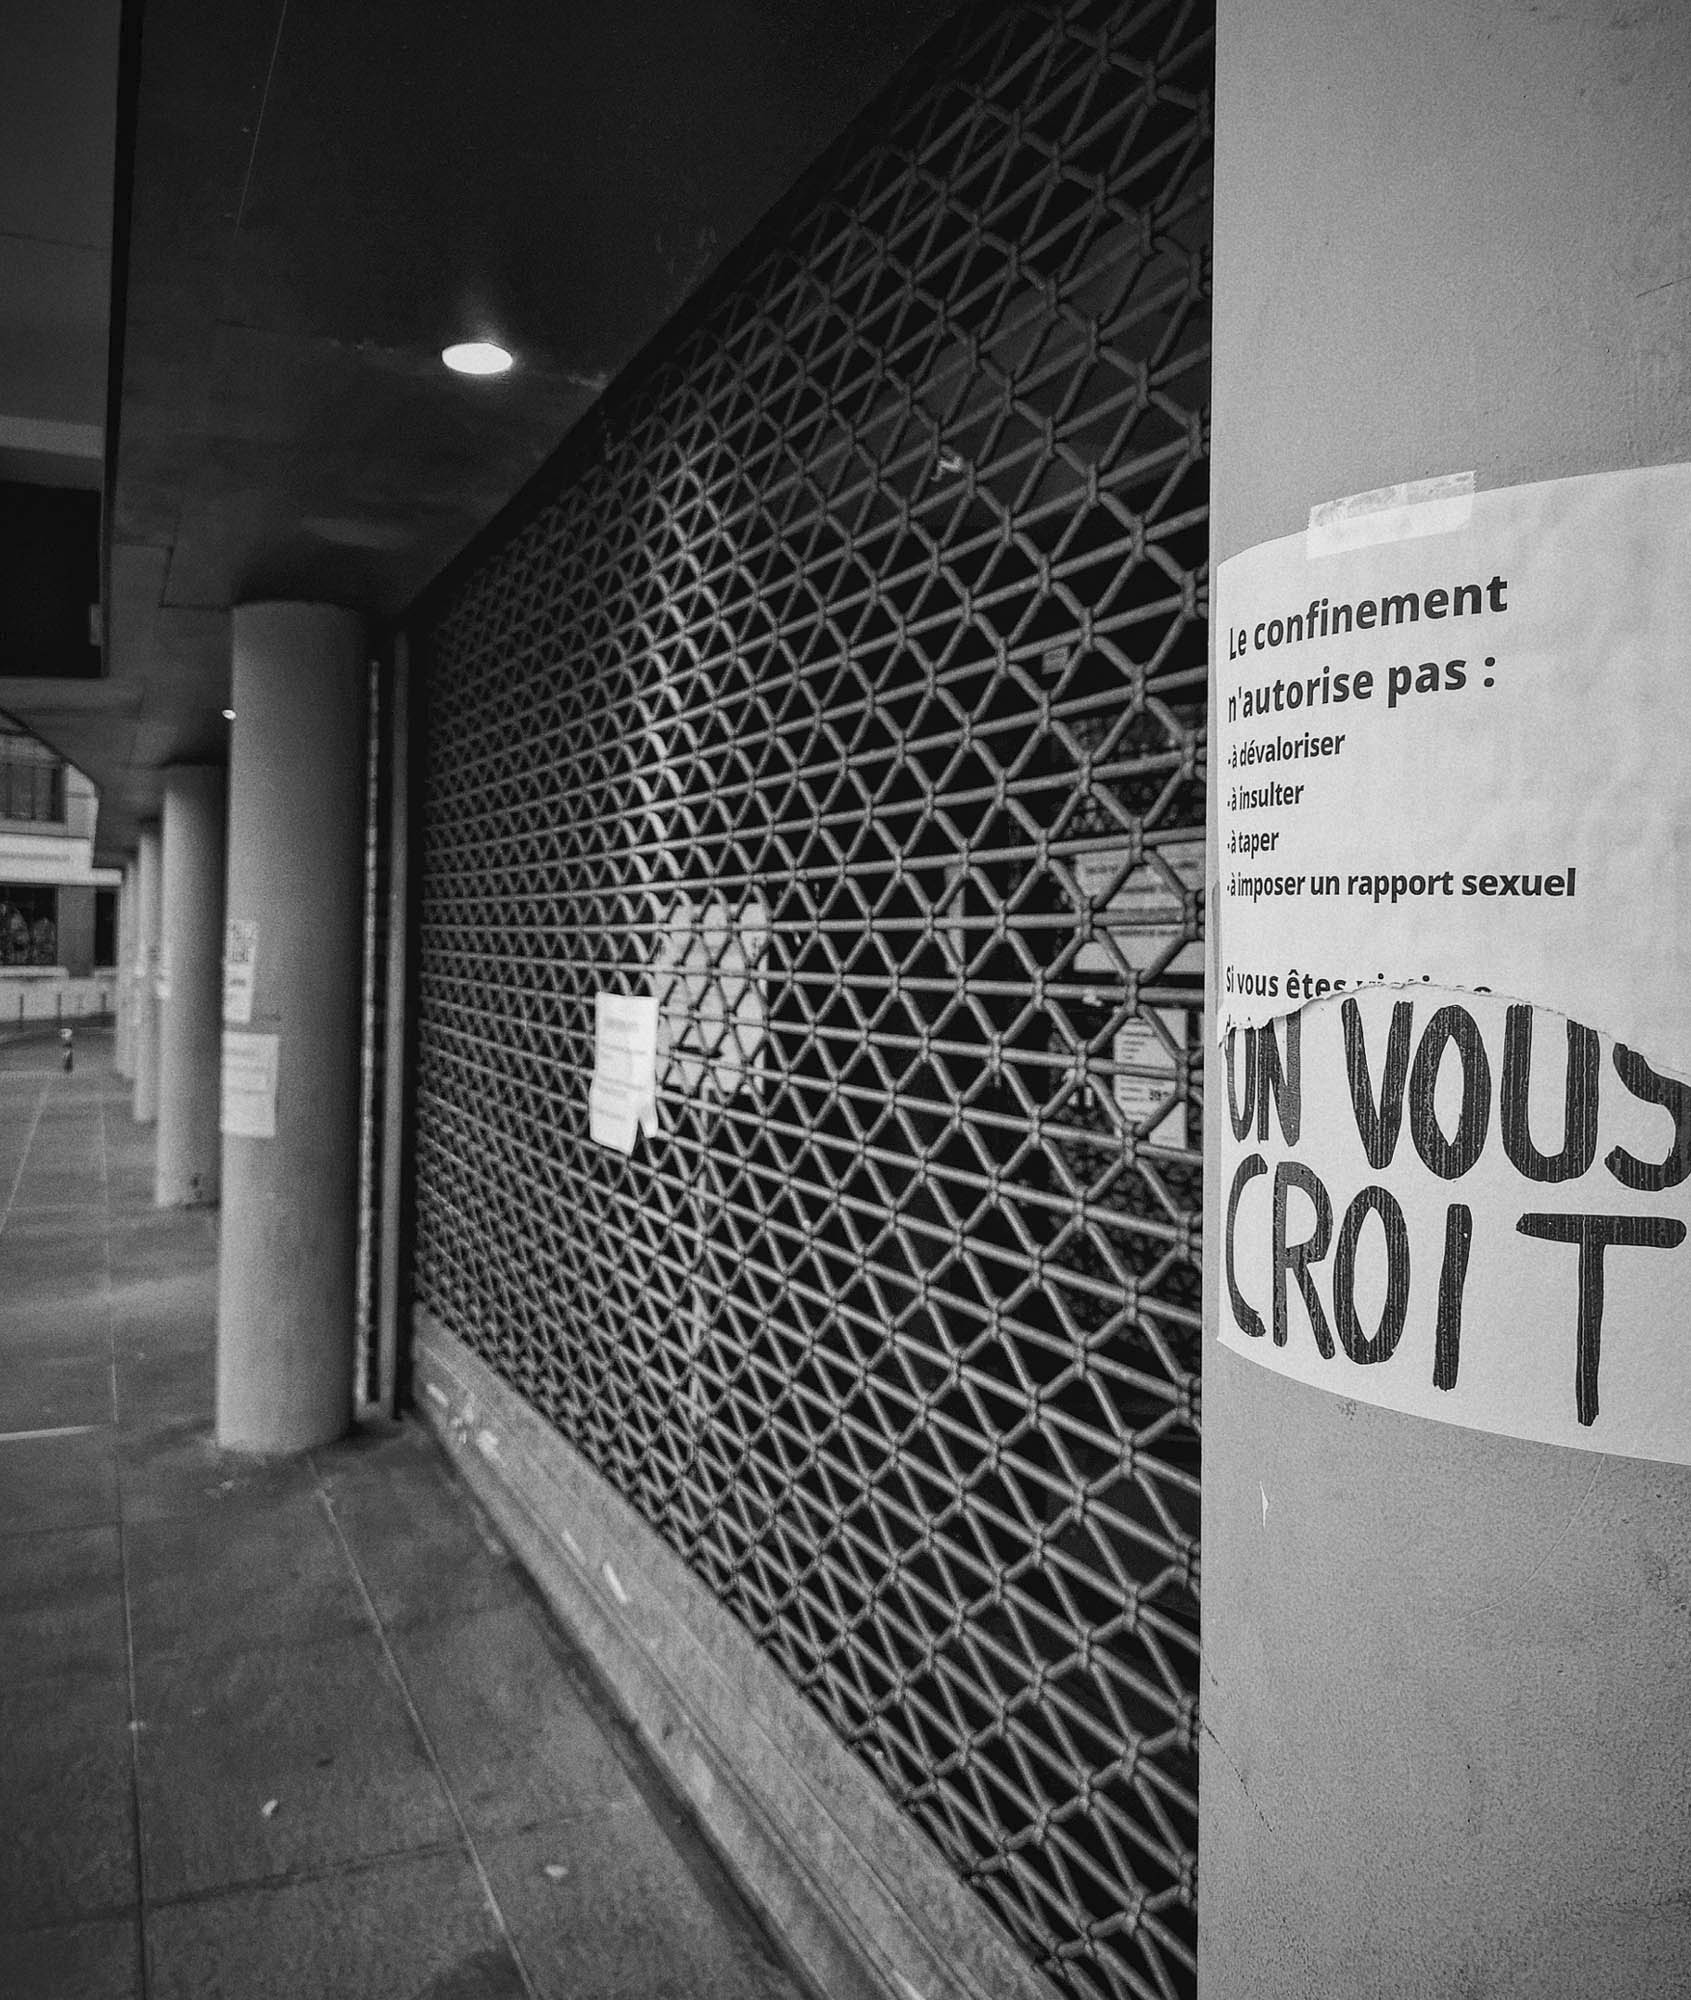 Le confinement
n'autorise pas :
-à dévaloriser
-à insulter
-à taper
-à imposer un rapport sexuel
Si vous êtes
ON VOUS
CROIT